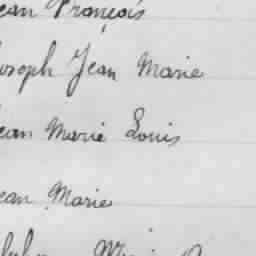 ean François
oseph Jean Marie
ean Marie Louis
ean Marie